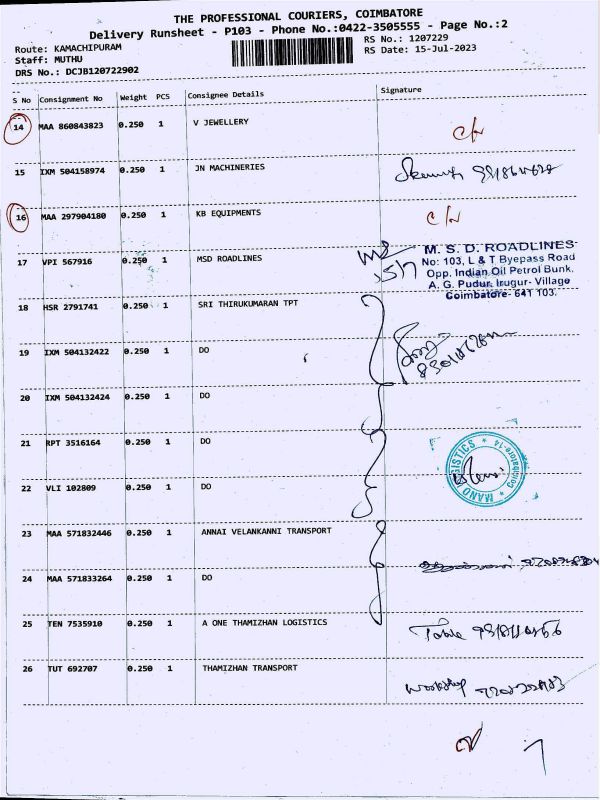 THE PROFESSIONAL COURIERS, COIMBATORE
Delivery Runsheet - P103 - Phone No.:0422-3505555 - Page No.:2
Route: KAMACHIPURAM RS No.: 1207229
Staff: MUTHU RS Date: 15-Jul-2023
DRS No.: DCJB120722902
S No Consignment No Weight PCS Consignee Details Signature
14 MAA 860843823 0.250 1 V JEWELLERY
15 IXM 504158974 0.250 1 JN MACHINERIES
16 MAA 297904180 0.250 1 KB EQUIPMENTS
17 VPI 567916 0.250 1 MSD ROADLINES
M. S. D. ROADLINES
No: 103, L & T Byepass Road
Opp. Indian Oil Petrol Bunk,
A. G. Pudur, Irugur- Village
Coimbatore- 641 103.
18 HSR 2791741 0.250 1 SRI THIRUKUMARAN TPT
19 IXM 504132422 0.250 1 DO
20 IXM 504132424 0.250 1 DO
21 RPT 3516164 0.250 1 DO
22 VLI 102809 0.250 1 DO
MANO LOGISTICS * Coimbatore-14 *
23 MAA 571832446 0.250 1 ANNAI VELANKANNI TRANSPORT
24 MAA 571833264 0.250 1 DO
25 TEN 7535910 0.250 1 A ONE THAMIZHAN LOGISTICS
26 TUT 692707 0.250 1 THAMIZHAN TRANSPORT